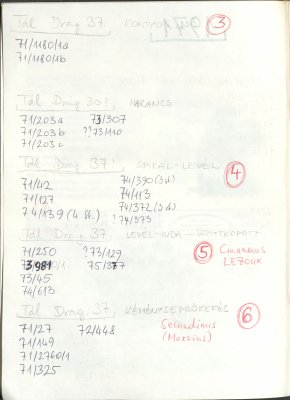 Tál Drag 37, KONYOL ③
71/1180/1a
71/1180/1b
Tál Drag 30?, NARANCS
71/203a 73/307
71/203b ??73/110
71/203c
Tál Drag 37!, SPIRÁL-LEVÉL ④
71/42 74/390 (3d)
71/127 74/113
74/139 (4 st.) 74/372 (3d)
?74/373
Tál Drag 37 LEVÉL-INDA
71/250 ?73/129 ⑤ Cinnamus
3981 75/377 LEZOUX
73/45
74/613
Tál Drag 37, KÉMÉNYSEPRŐKEFÉS ⑥
71/27 72/448 Secundinus
71/149 (Moxsius)
71/2760/1
71/325